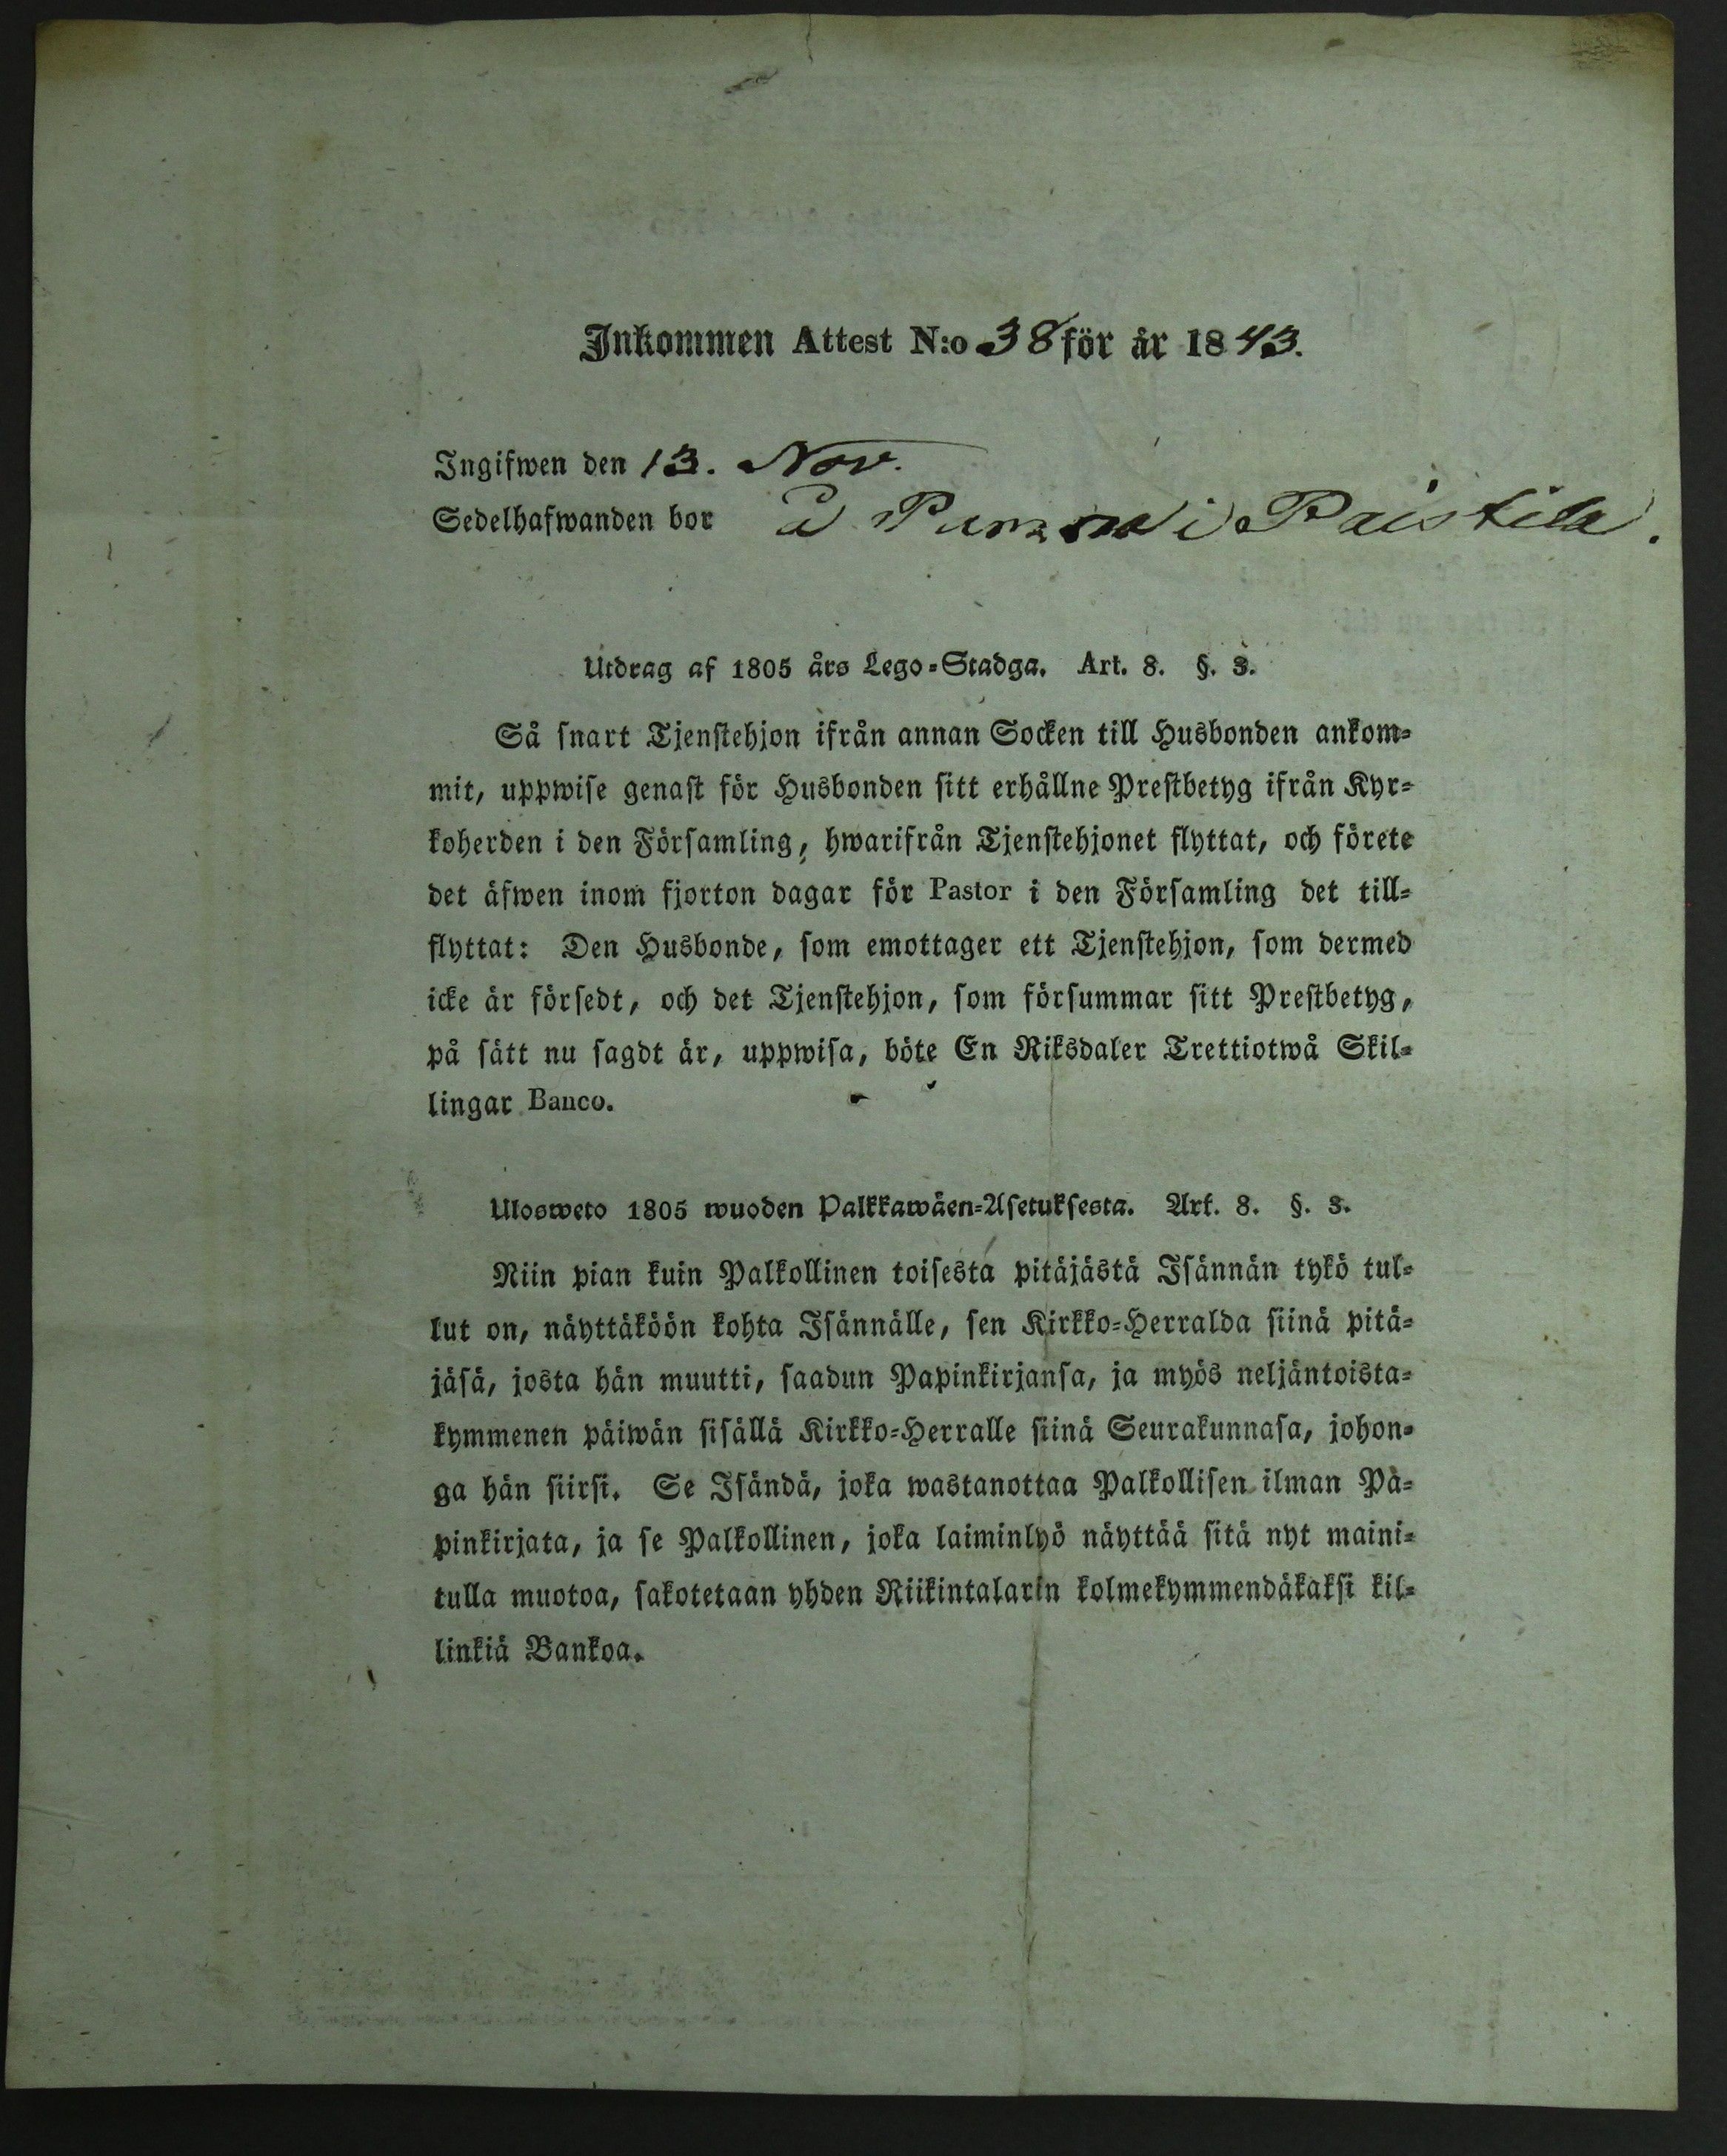 Inkommen Attest N:o 38 för år 1843.
Ingifwen den 13. Nov.
Sedelhafwanden bor å i Paistila.
Utdrag af 1805 års Lego-Stadga. Art. 8. §. 3.
Så snart Tjenstehjon ifrån annan Socken till Husbonden ankom-
mit, uppwise genast för Husbonden sitt erhållne Prestbetyg ifrån Kyr-
koherden i den Församling, hwarifrån Tjenstehjonet flyttat, och förete
det äfwen inom fjorton dagar för Pastor i den Församling det till-
flyttat: Den Husbonde, som emottager ett Tjenstehjon, som dermed
icke är försedt, och det Tjenstehjon, som försummar sitt Prestbetyg,
på sätt nu sagdt är, uppwisa, böte En Riksdaler Trettiotwå Skil-
lingar Banco.
Ulosweto 1805 wuoden Palkkawäen-Asetuksesta. Art. 8. §. 3.
Niin pian kuin Palkollinen toisesta pitäjästä Isännän tykö tul-
lut on, näyttäköön kohta Isännälle, sen Kirkko-Herralda siinä pitä-
jäsä, josta hän muutti, saadun Papinkirjansa, ja myös neljäntoista-
kymmenen päiwän sisällä Kirkko-Herralle siinä Seurakunnasa, johon-
ga hän siirsi. Se Isändä, joka wastanottaa Palkollisen ilman Pa-
pinkirjata, ja se Palkollinen, joka laiminlyö näyttää sitä nyt maini-
tulla muotoa, sakotetaan yhden Riikintalarin kolmekymmendäkaksi kil-
linkiä Bankoa.